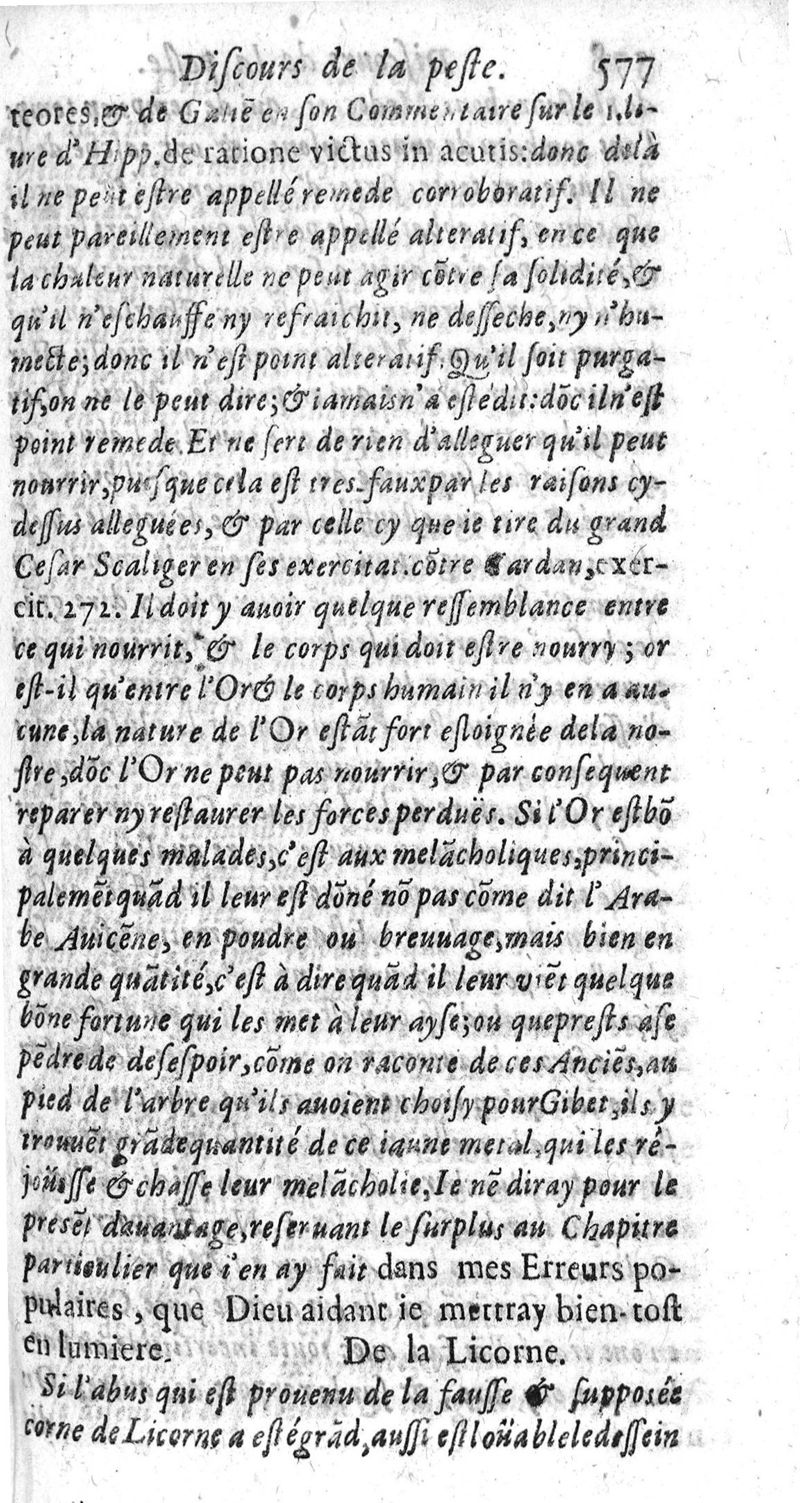 Diſcours de la peſte. 577
teores, & de Galiē en ſon Commentaire ſur le 1. li-
ure d'Hipp. de ratione victus in acutis: donc delà
il ne peut eſtre appellé remede corroboratif. Il ne
peut pareillement eſtre appellé alteratif, en ce que
la chaleur naturelle ne peut agir cōtre ſa ſolidité, &
qu'il n'eſchauffe ny refraichit, ne deſſeche, ny n'hu-
mecte; donc il n'eſt point alteratif. Qu'il ſoit purga-
tif, on ne le peut dire; & iamais n'a eſté dit: dōc il n'eſt
point remede. Et ne ſert de rien d'alleguer qu'il peut
nourrir, puiſque cela eſt tres-faux par les raiſons cy-
deſſus alleguées, & par celle cy que ie tire du grand
Ceſar Scaliger en ſes exercitat. cōtre Cardan, exer-
cit. 272. Il doit y auoir quelque reſſemblance entre
ce qui nourrit, & le corps qui doit eſtre nourry; or
eſt-il qu'entre l'Or & le corps humain il n'y en a au-
cune, la nature de l'Or eſtāt fort eſloignée de la no-
ſtre, dōc l'Or ne peut pas nourrir, & par conſequent
reparer ny reſtaurer les forces perduës. Si l'Or eſt bō
à quelques malades, c'eſt aux melācholiques, princi-
palemēt quād il leur eſt dōné nō pas cōme dit l'Ara-
be Auicēne, en poudre ou breuuage, mais bien en
grande quātité, c'eſt à dire quād il leur viēt quelque
bōne fortune qui les met à leur ayſe; ou que preſts à ſe
pēdre de deſeſpoir, cōme on raconte de ces Anciēs, au
pied de l'arbre qu'ils auoient choiſy pour Gibet, ils y
trouuēt grāde quantité de ce iaune metal, qui les ré-
joüiſſe & chaſſe leur melācholie, Ie nē diray pour le
preſēt dauantage, reſeruant le ſurplus au Chapitre
particulier que i'en ay fait dans mes Erreurs po-
pulaires, que Dieu aidant ie mettray bien-toſt
en lumiere. De la Licorne.
Si l'abus qui eſt prouenu de la fauſſe & ſuppoſée
corne de Licorne a eſté grād, auſſi eſt loüable le deſſein